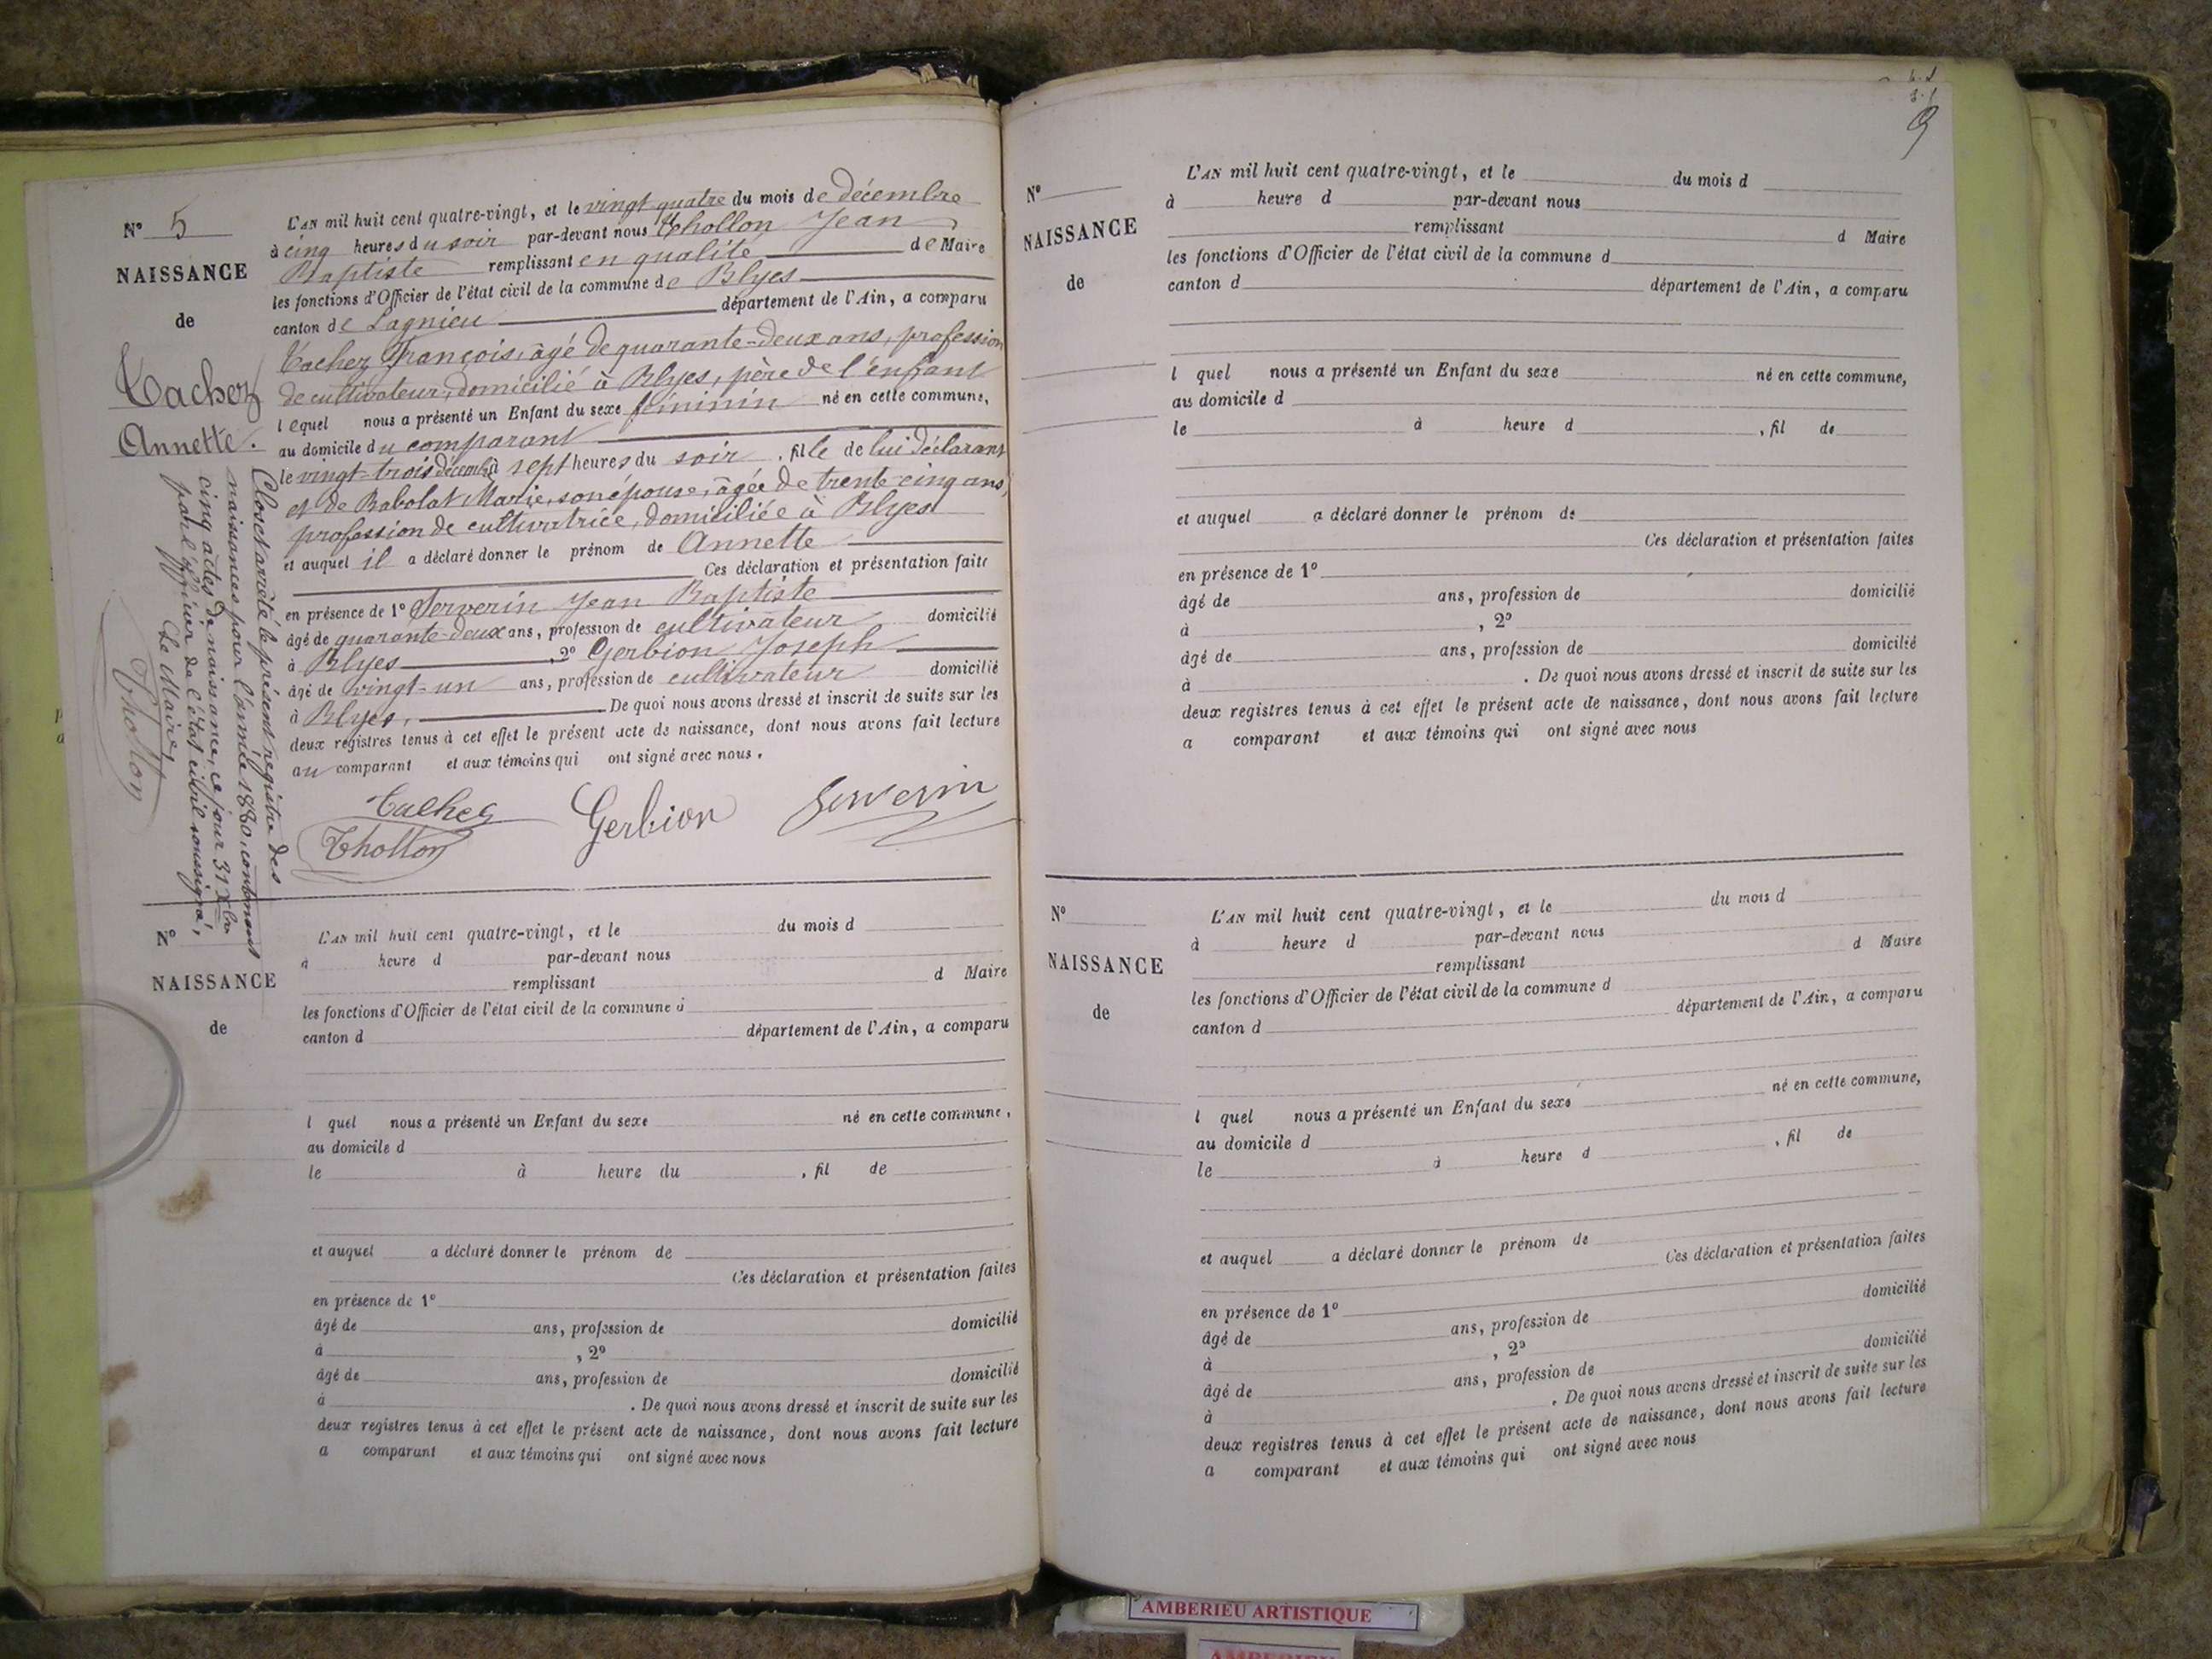 N° 5
NAISSANCE
de
Tachez
Annette.
L'AN mil huit cent quatre-vingt, et le vingt quatre du mois de décembre
à cinq heures du soir par-devant nous Thollon Jean
Baptiste remplissant en qualité de Maire
les fonctions d'Officier de l'état civil de la commune de Blyes
canton de Lagnieu département de l'Ain, a comparu
Tachez François, âgé de quarante-deux ans, profession
de cultivateur, domicilié à Blyes, père de l'enfant
lequel nous a présenté un Enfant du sexe féminin né en cette commune,
au domicile du comparant
le vingt-trois décembre à sept heures du soir, fille de lui déclarant
et de Babolat Marie, son épouse, âgée de trente cinq ans,
profession de cultivatrice, domiciliée à Blyes
et auquel il a déclaré donner le prénom de Annette
Ces déclaration et présentation faite
en présence de 1° Serverin Jean Baptiste
âgé de quarante-deux ans, profession de cultivateur domicilié
à Blyes, 2° Gerbion Joseph
âgé de vingt-un ans, profession de cultivateur domicilié
à Blyes, De quoi nous avons dressé et inscrit de suite sur les
deux registres tenus à cet effet le présent acte de naissance, dont nous avons fait lecture
au comparant et aux témoins qui ont signé avec nous.
Tachez Gerbion Serverin
Thollon
Clos et arrêté le présent registre des
naissances pour l'année 1880, contenant
cinq actes de naissance, ce jour 31 Xbre
par l'officier de l'état civil soussigné,
Le Maire,
Thollon
N°
NAISSANCE
de
L'AN mil huit cent quatre-vingt, et le du mois d
à heure d par-devant nous
remplissant d Maire
les fonctions d'Officier de l'état civil de la commune d
canton d département de l'Ain, a comparu
l quel nous a présenté un Enfant du sexe né en cette commune,
au domicile d
le à heure du , fil de
et auquel a déclaré donner le prénom de
Ces déclaration et présentation faites
en présence de 1°
âgé de ans, profession de domicilié
à , 2°
âgé de ans, profession de domicilié
à . De quoi nous avons dressé et inscrit de suite sur les
deux registres tenus à cet effet le présent acte de naissance, dont nous avons fait lecture
a comparant et aux témoins qui ont signé avec nous
9
N°
NAISSANCE
de
L'AN mil huit cent quatre-vingt, et le du mois d
à heure d par-devant nous
remplissant d Maire
les fonctions d'Officier de l'état civil de la commune d
canton d département de l'Ain, a comparu
l quel nous a présenté un Enfant du sexe né en cette commune,
au domicile d
le à heure d , fil de
et auquel a déclaré donner le prénom de
Ces déclaration et présentation faites
en présence de 1°
âgé de ans, profession de domicilié
à , 2°
âgé de ans, profession de domicilié
à . De quoi nous avons dressé et inscrit de suite sur les
deux registres tenus à cet effet le présent acte de naissance, dont nous avons fait lecture
a comparant et aux témoins qui ont signé avec nous
N°
NAISSANCE
de
L'AN mil huit cent quatre-vingt, et le du mois d
à heure d par-devant nous
remplissant d Maire
les fonctions d'Officier de l'état civil de la commune d
canton d département de l'Ain, a comparu
l quel nous a présenté un Enfant du sexe né en cette commune,
au domicile d
le à heure d , fil de
et auquel a déclaré donner le prénom de
Ces déclaration et présentation faites
en présence de 1°
âgé de ans, profession de domicilié
à , 2°
âgé de ans, profession de domicilié
à . De quoi nous avons dressé et inscrit de suite sur les
deux registres tenus à cet effet le présent acte de naissance, dont nous avons fait lecture
a comparant et aux témoins qui ont signé avec nous
AMBERIEU ARTISTIQUE
AMBERIEU